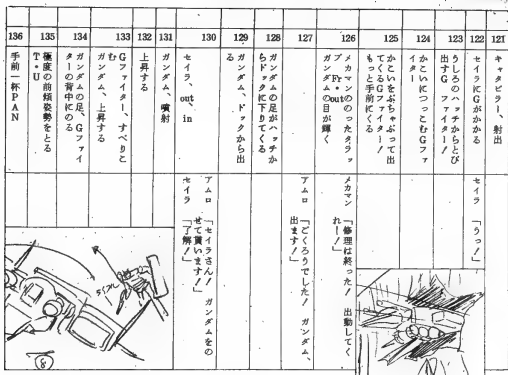 121
キャタピラー、射出
122
セイラにGがかかる
セイラ 「うっ!」
123
うしろのハッチからとび
出すG ファイター!
124
かこいにつっこむGファ
イター
125
かこいをぶちゃぶって出
てくるGファイター!
もっと手前にくる
126
メカマンののったタラッ
プ Fr・out
ガンダムの目が輝く
メカマン 「修理は終った! 出動してく
れー!」
127
アムロ 「ごくろうでした! ガンダム、
出ます!」
128
ガンダムの足がハッチか
らドックに下りてくる
129
ガンダム、ドックから出
る
130
セイラ、out、in
アムロ 「セイラさん! ガンダムをの
せて貰います!」
セイラ 「了解!」
131
ガンダム、噴射
132
上昇する
133
Gファイター、すべりこ
む
ガンダム、上昇する
134
ガンダムの足、Gファイ
ターの背中にのる
135
極度の前傾姿勢をとる
T・U
136
手前一杯PAN